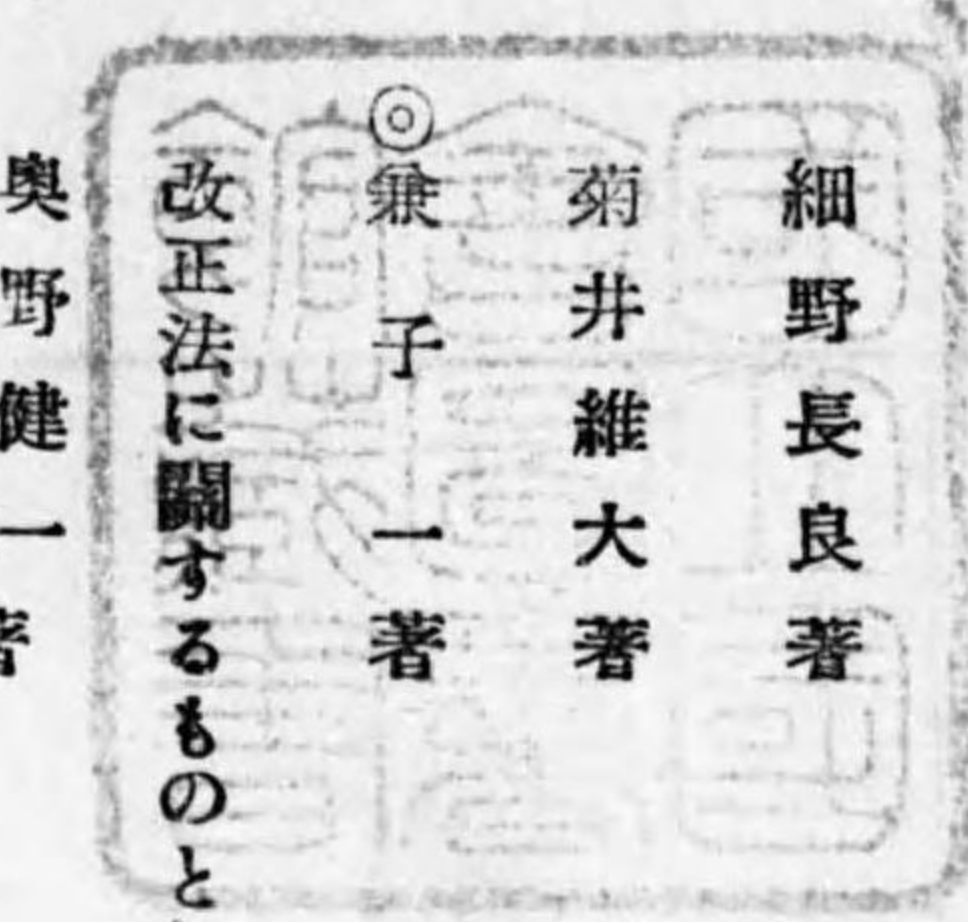 細野長良著
菊井維大著
◎兼子一著
改正法に關するものと
奥野健一著